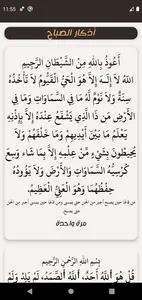 11:55
أذكار الصباح
أَعُوذُ بِاللهِ مِنْ الشَّيْطَانِ الرَّجِيمِ
اللهُ لاَ إِلَهَ إِلاَّ هُوَ الْحَيُّ الْقَيُّومُ لاَ تَأْخُذُهُ
سِنَةٌ وَلاَ نَوْمٌ لَّهُ مَا فِي السَّمَاوَاتِ وَمَا فِي
الأَرْضِ مَن ذَا الَّذِي يَشْفَعُ عِنْدَهُ إِلاَّ بِإِذْنِهِ
يَعْلَمُ مَا بَيْنَ أَيْدِيهِمْ وَمَا خَلْفَهُمْ وَلاَ
يُحِيطُونَ بِشَيْءٍ مِّنْ عِلْمِهِ إِلاَّ بِمَا شَاء وَسِعَ
كُرْسِيُّهُ السَّمَاوَاتِ وَالأَرْضَ وَلاَ يَؤُودُهُ
حِفْظُهُمَا وَهُوَ الْعَلِيُّ الْعَظِيمُ.
من قالها حين يصبح أجير من الجن حتى يمسى ومن قالها حين يمسى أجير من الجن
حتى يصبح
مرة واحدة
بِسْمِ اللهِ الرَّحْمنِ الرَّحِيم
قُلْ هُوَ اللَّهُ أَحَدٌ، اللَّهُ الصَّمَدُ، لَمْ يَلِدْ وَلَمْ